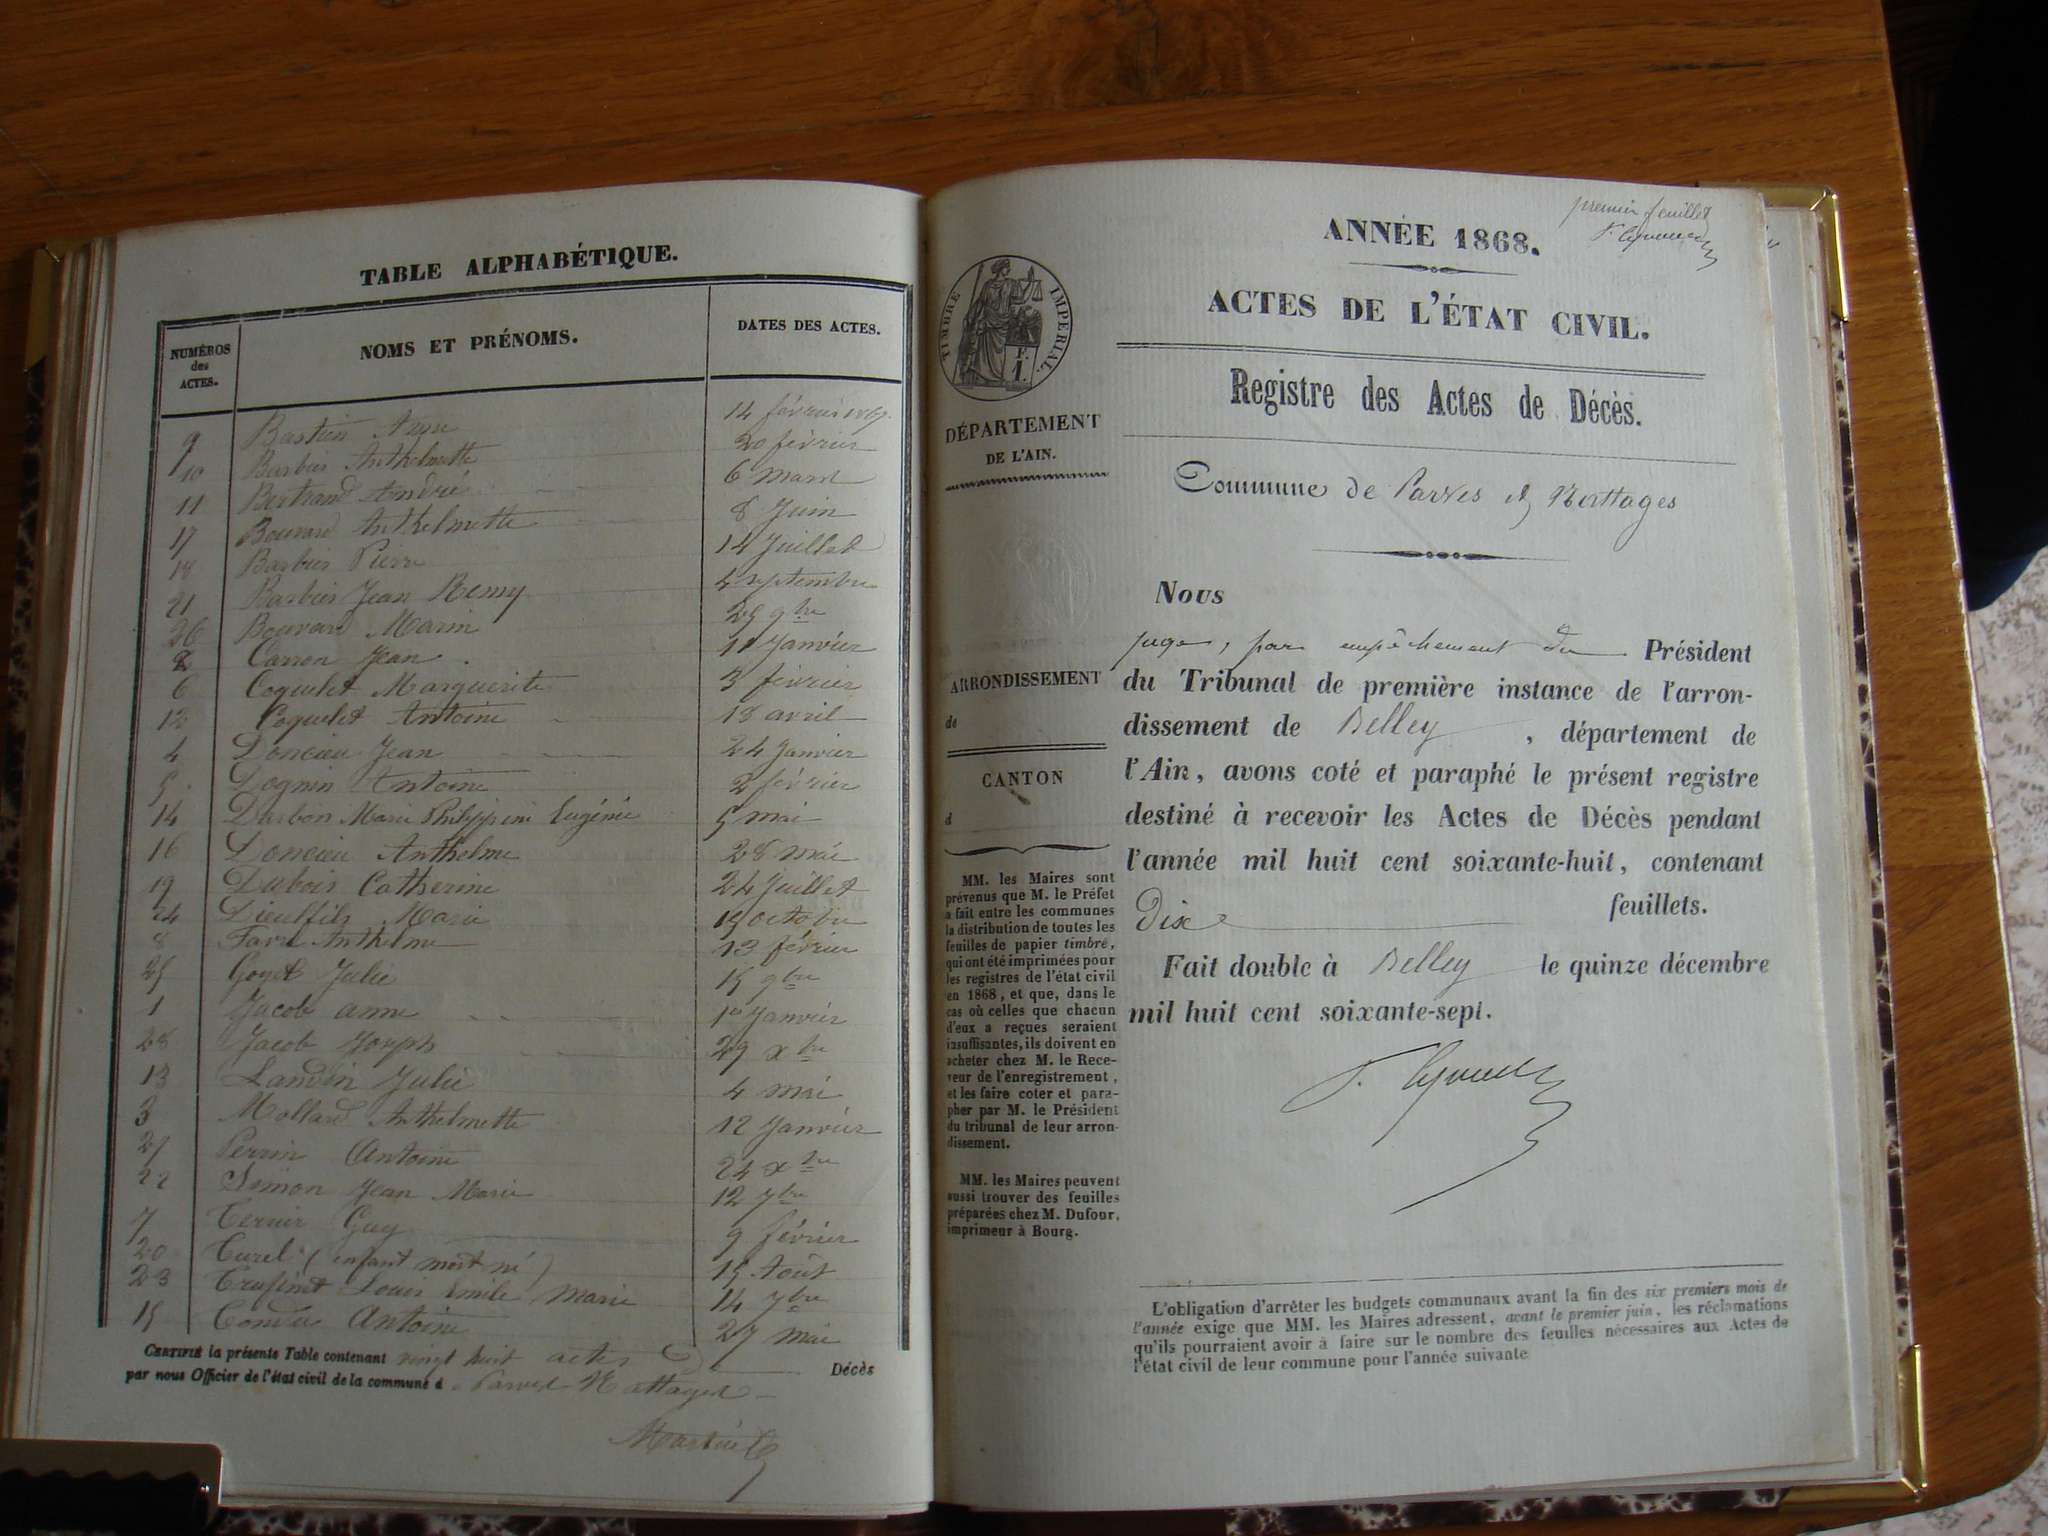 TABLE ALPHABÉTIQUE.
NUMÉROS des ACTES. NOMS ET PRÉNOMS. DATES DES ACTES.
9 Bastien 14 février
10 Barbier Anthelmette 20 février
11 Bertrand André 6 mars
17 Bouvard Anthelmette 8 Juin
18 Barbier Pierre 14 Juillet
21 Barbier Jean Remy 4 septembre
26 Bouvard Marin 25 9bre
2 Carron Jean 11 Janvier
6 Coquelet Marguerite 3 février
12 Coquelet Antoine 18 avril
4 Doncieu Jean 24 Janvier
5 Dognin Antoine 2 février
14 Darbon Marie Philippine Eugénie 5 mai
16 Doncieu Anthelme 28 mai
19 Dubois Catherine 24 Juillet
24 Dieulfils Marie 15 octobre
8 Favre Anthelme 13 février
25 Goyet Julie 15 9bre
1 Jacob anne 1er Janvier
28 Jacob Joseph 29 xbre
13 Landin Julie 4 mai
3 Mollard Anthelmette 12 Janvier
27 Perrin Antoine 24 xbre
22 Simon Jean Marie 12 7bre
7 Terrier Guy 9 février
20 Curel (enfant mort né) 15 Août
23 Louis Emile Marie 14 7bre
15 Antoine 27 mai
CERTIFIÉ la présente Table contenant vingt huit actes de Décès
par nous Officier de l'état civil de la commune d Parves Nattages
premier feuillet
ANNÉE 1868.
ACTES DE L'ÉTAT CIVIL.
Registre des Actes de Décès.
TIMBRE IMPÉRIAL.
DÉPARTEMENT
DE L'AIN.
Commune de Parves et Nattages
ARRONDISSEMENT
de
CANTON
d
MM. les Maires sont
prévenus que M. le Préfet
a fait entre les communes
la distribution de toutes les
feuilles de papier timbré,
qui ont été imprimées pour
les registres de l'état civil
en 1868, et que, dans le
cas où celles que chacun
d'eux a reçues seraient
insuffisantes, ils doivent en
acheter chez M. le Rece-
veur de l'enregistrement,
et les faire coter et para-
pher par M. le Président
du tribunal de leur arron-
dissement.
MM. les Maires peuvent
aussi trouver des feuilles
préparées chez M. Dufour,
imprimeur à Bourg.
Nous
juge, par empêchement du Président
du Tribunal de première instance de l'arron-
dissement de Belley, département de
l'Ain, avons coté et paraphé le présent registre
destiné à recevoir les Actes de Décès pendant
l'année mil huit cent soixante-huit, contenant
Dix feuillets.
Fait double à Belley le quinze décembre
mil huit cent soixante-sept.
L'obligation d'arrêter les budgets communaux avant la fin des six premiers mois de
l'année exige que MM. les Maires adressent, avant le premier juin, les réclamations
qu'ils pourraient avoir à faire sur le nombre des feuilles nécessaires aux Actes de
l'état civil de leur commune pour l'année suivante